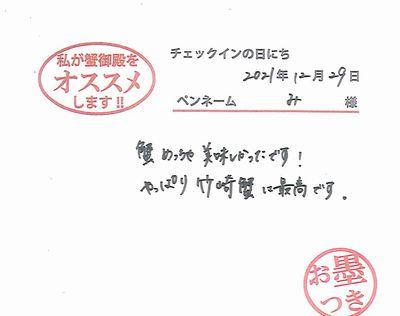 私が蟹御殿を
オススメ
します!!
チェックインの日にち
2021年12月29日
ペンネーム み 様
蟹めっちゃ美味しかったです!
やっぱり竹崎蟹は最高です。
お墨
つき